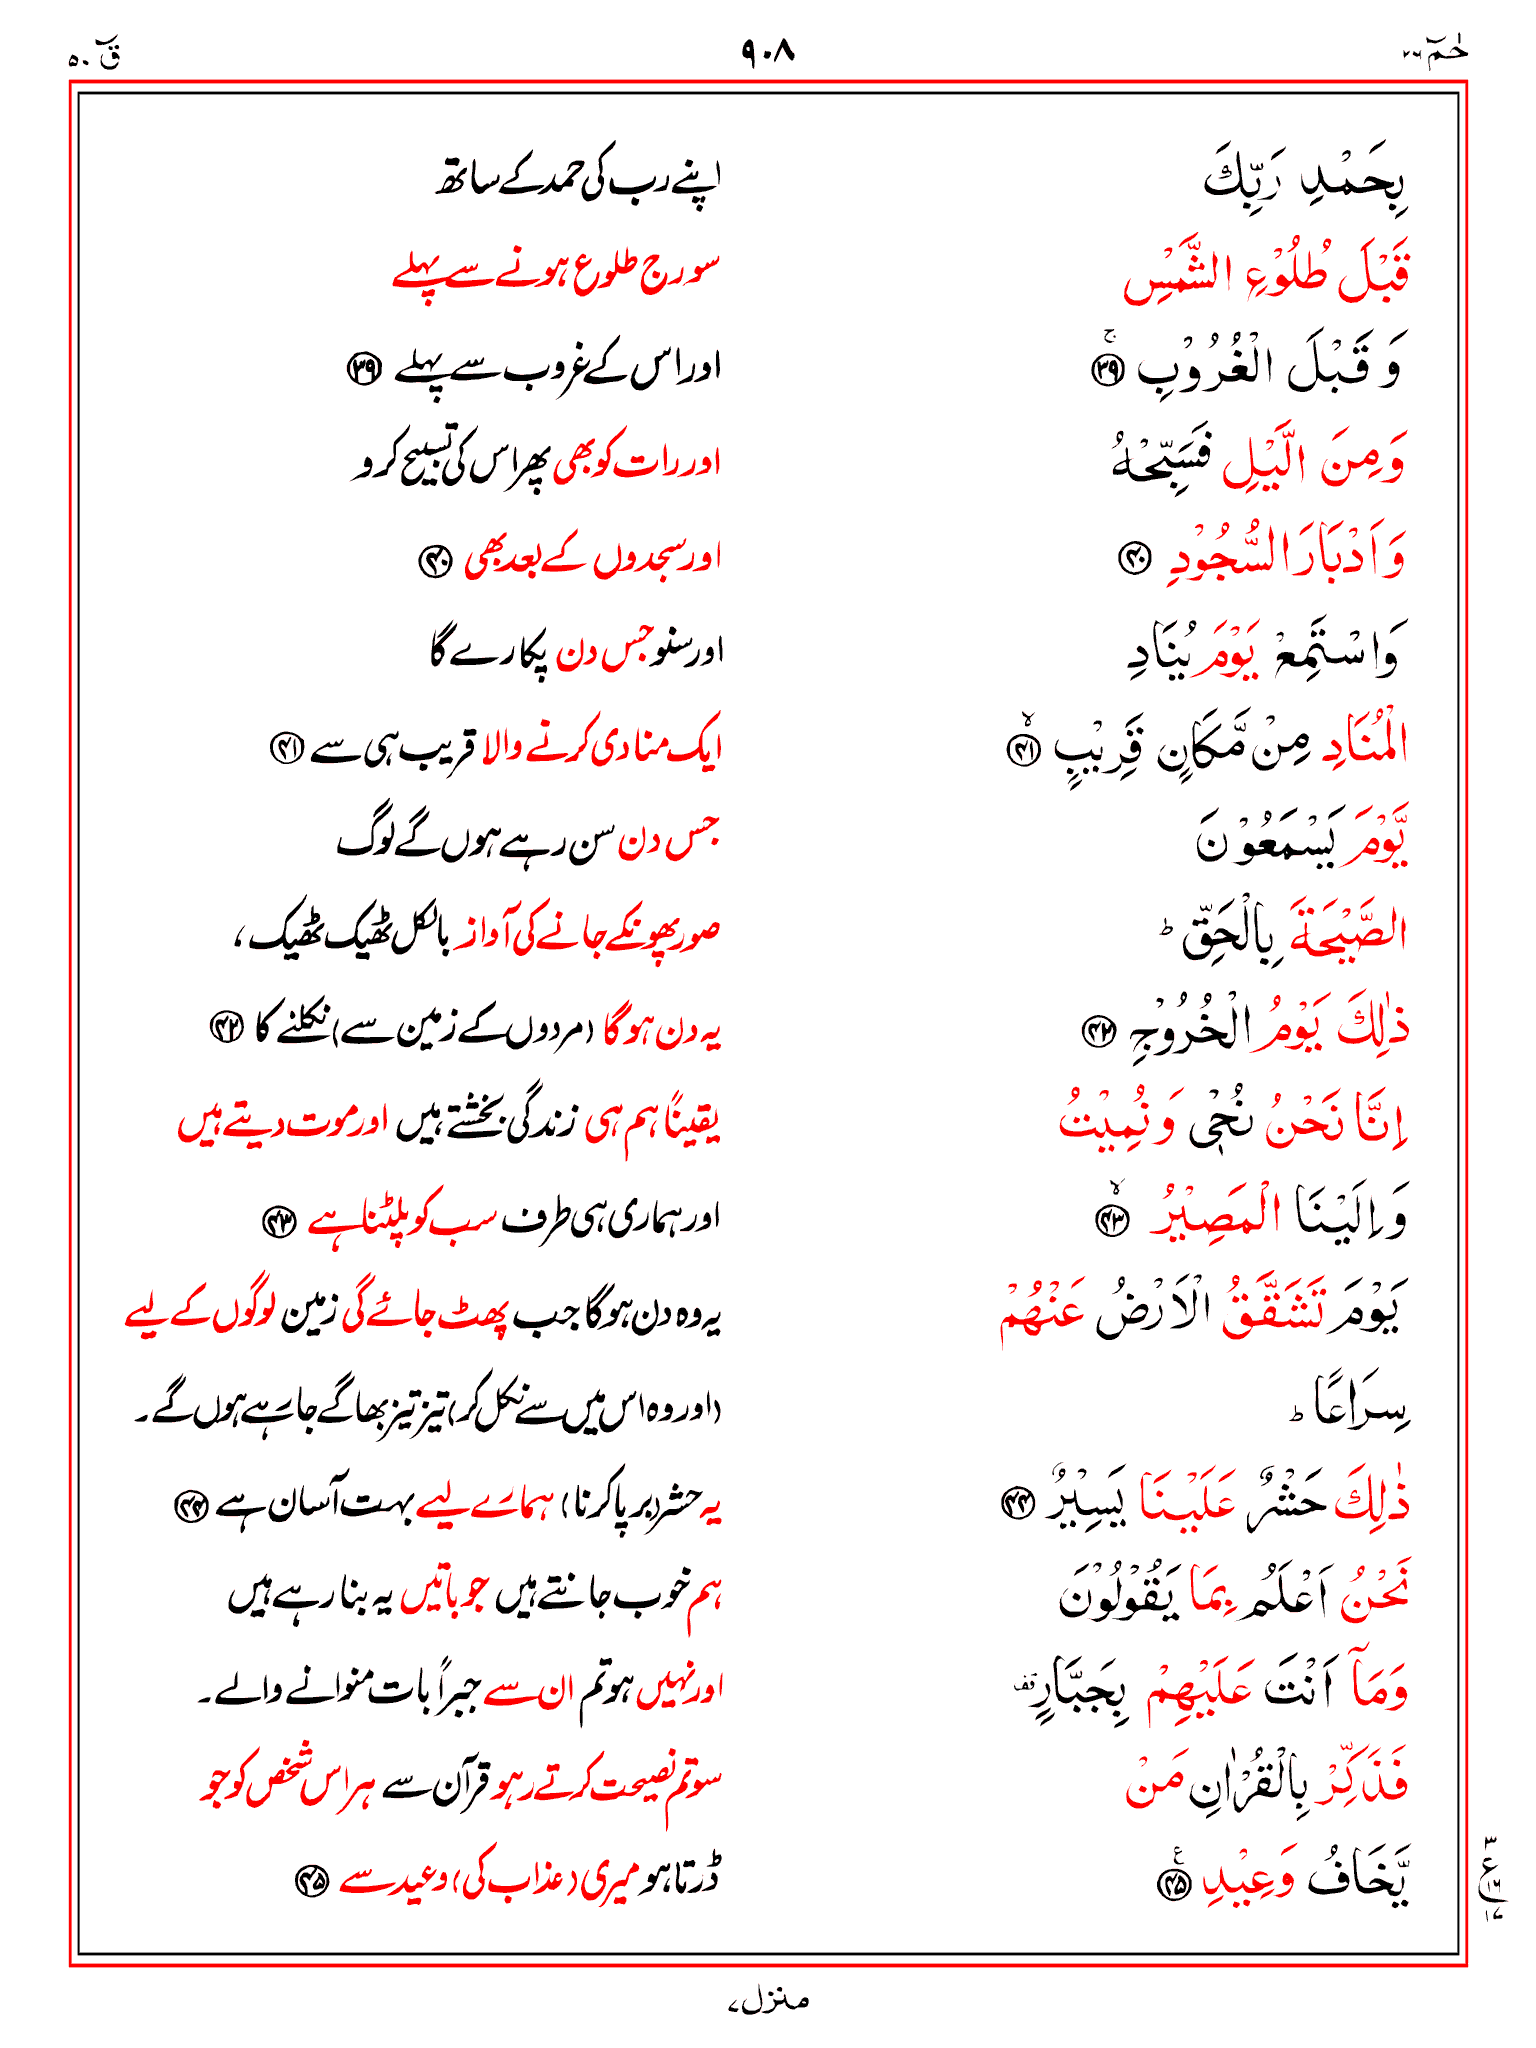 حٰمٓ ۲۶ ۹۰۸ قٓ ۵۰
بِحَمْدِ رَبِّكَ اپنے رب کی حمد کے ساتھ
قَبْلَ طُلُوْعِ الشَّمْسِ سورج طلوع ہونے سے پہلے
وَ قَبْلَ الْغُرُوْبِ ۚ ﴿۳۹﴾ اور اس کے غروب سے پہلے ﴿۳۹﴾
وَمِنَ الَّيْلِ فَسَبِّحْهُ اور رات کو بھی پھر اس کی تسبیح کرو
وَاَدْبَارَ السُّجُوْدِ ﴿۴۰﴾ اور سجدوں کے بعد بھی ﴿۴۰﴾
وَاسْتَمِعْ يَوْمَ يُنَادِ اور سنو جس دن پکارے گا
الْمُنَادِ مِنْ مَّكَانٍ قَرِيْبٍ ۙ ﴿۴۱﴾ ایک منادی کرنے والا قریب ہی سے ﴿۴۱﴾
يَّوْمَ يَسْمَعُوْنَ جس دن سن رہے ہوں گے لوگ
الصَّيْحَةَ بِالْحَقِّ ؕ صور پھونکے جانے کی آواز بالکل ٹھیک ٹھیک،
ذٰلِكَ يَوْمُ الْخُرُوْجِ ﴿۴۲﴾ یہ دن ہوگا (مردوں کے زمین سے) نکلنے کا ﴿۴۲﴾
اِنَّا نَحْنُ نُحْيٖ وَ نُمِيْتُ یقیناً ہم ہی زندگی بخشتے ہیں اور موت دیتے ہیں
وَ اِلَيْنَا الْمَصِيْرُ ۙ ﴿۴۳﴾ اور ہماری ہی طرف سب کو پلٹنا ہے ﴿۴۳﴾
يَوْمَ تَشَقَّقُ الْاَرْضُ عَنْهُمْ یہ وہ دن ہوگا جب پھٹ جائے گی زمین لوگوں کے لیے
سِرَاعًا ؕ (اور وہ اس میں سے نکل کر) تیز تیز بھاگے جارہے ہوں گے۔
ذٰلِكَ حَشْرٌ عَلَيْنَا يَسِيْرٌ ﴿۴۴﴾ یہ حشر (برپا کرنا) ہمارے لیے بہت آسان ہے ﴿۴۴﴾
نَحْنُ اَعْلَمُ بِمَا يَقُوْلُوْنَ ہم خوب جانتے ہیں جو باتیں یہ بنا رہے ہیں
وَمَآ اَنْتَ عَلَيْهِمْ بِجَبَّارٍ ۟قف اور نہیں ہو تم ان سے جبراً بات منوانے والے۔
فَذَكِّرْ بِالْقُرْاٰنِ مَنْ سو تم نصیحت کرتے رہو قرآن سے ہر اس شخص کو جو
يَّخَافُ وَعِيْدِ ﴿۴۵﴾ ع ڈرتا ہو میری (عذاب کی) وعید سے ﴿۴۵﴾
۳
ع
۱۶
۱۷
منزل ۷